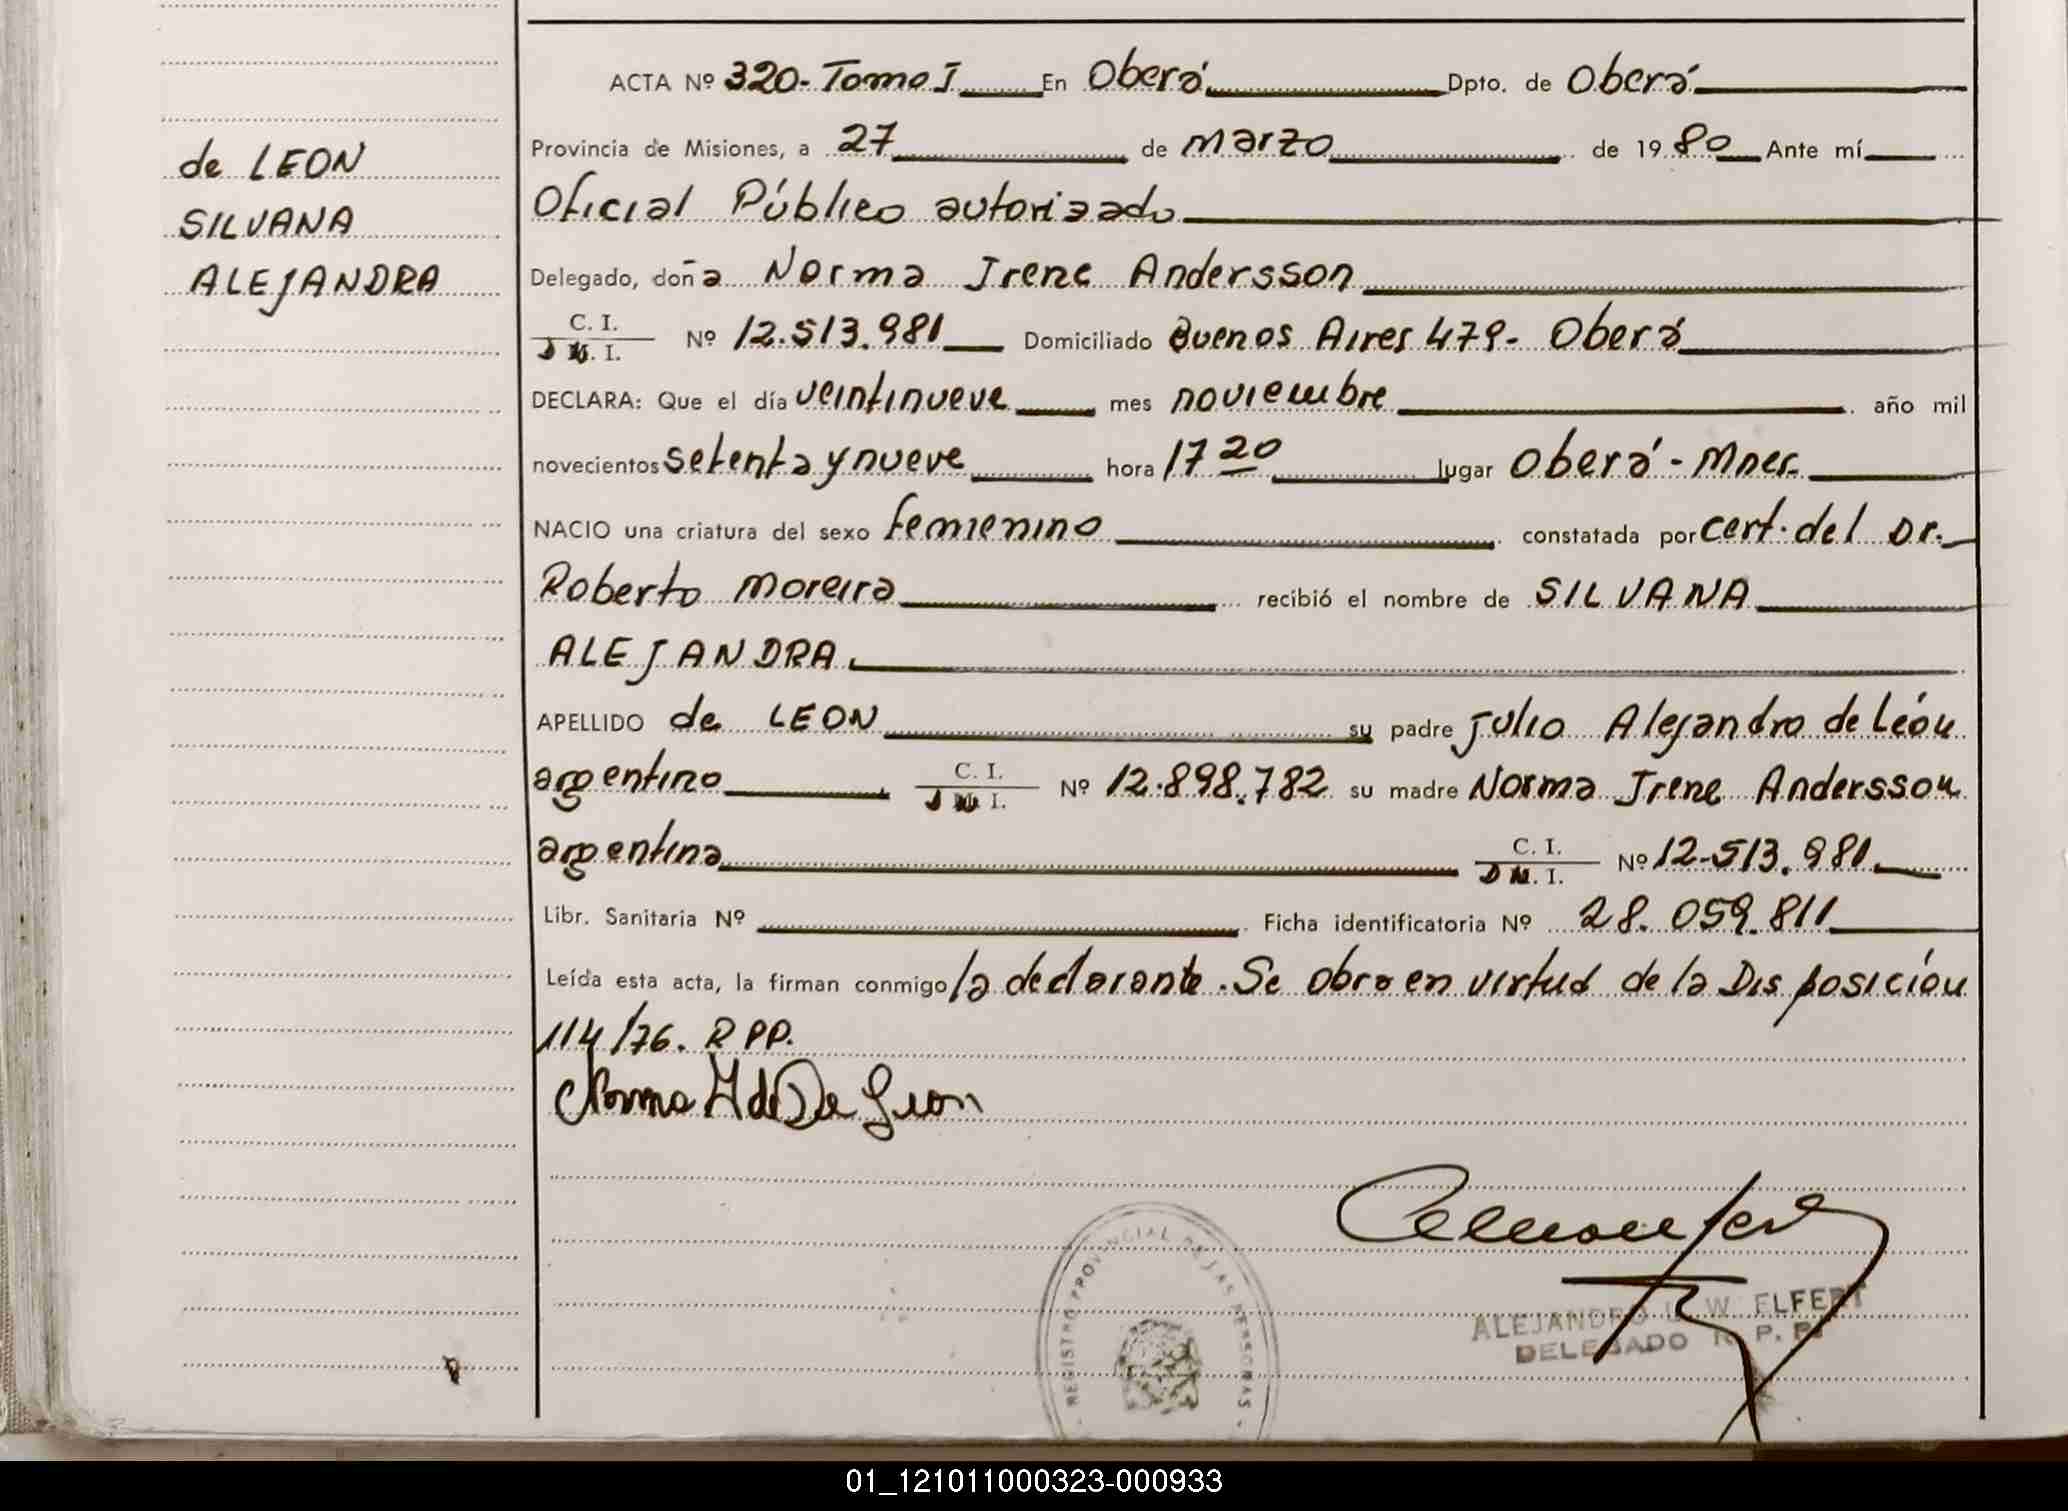 de LEON
SILVANA
ALEJANDRA
ACTA Nº 320- Tomo I En Oberá Dpto. de Oberá
Provincia de Misiones, a 27 de marzo de 1980 Ante mí
Oficial Público autorizado
Delegado, doña Norma Irene Andersson
C. I.
D N. I. Nº 12.513.981 Domiciliado Buenos Aires 479- Oberá
DECLARA: Que el día veintinueve mes noviembre año mil
novecientos setenta y nueve hora 17 20 lugar Oberá - Mnes.
NACIO una criatura del sexo femienino constatada por cert. del Dr.
Roberto Moreira recibió el nombre de SILVANA
ALEJANDRA
APELLIDO de LEON su padre Julio Alejandro de León
argentino C. I.
D N I. Nº 12.898.782 su madre Norma Irene Andersson
argentina C. I.
D N. I. Nº 12-513.981
Libr. Sanitaria Nº Ficha identificatoria Nº 28.059.811
Leída esta acta, la firman conmigo la declarante. Se obra en virtud de la Disposición
114/76. R PP.
Norma A de De Leon
REGISTRO PROVINCIAL DE LAS PERSONAS
ALEJANDRO W. ELFERT
DELEGADO R. P. P.
01_121011000323-000933